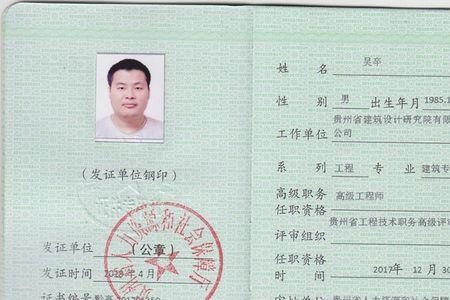 (发证单位钢印)
发证单位 (公章)
发证时间 2020年4月
证书编号
人力资源和社会保障厅
姓名 吴卒
性别 男 出生年月 1985.1
工作单位 贵州省建筑设计研究院有限
公司
系列 工程 专业 建筑专
高级职务
任职资格 高级工程师
评审组织 贵州省工程技术职务高级评审
任职资格
时间 2017年12月30